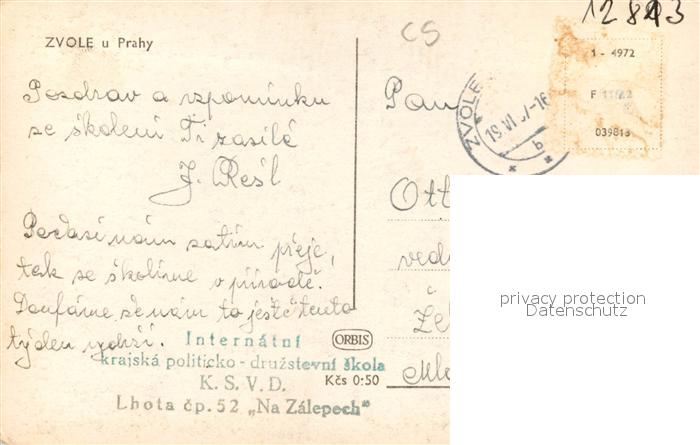 12843
CS
ZVOLE u Prahy
1 - 4972
F 11/22
039813
ZVOLE
19.VI.57-16
b
Pozdrav a vzpomínku
ze školení Ti zasílá
J. Rešl
Počasí nám zatím přeje,
tak se školíme v přírodě.
Doufáme že nám to ještě tento
týden vydrží.
Pan
Ott
ved
Žel
Mla
privacy protection
Datenschutz
Internátní
krajská politicko - družstevní škola
K. S. V. D.
Lhota čp. 52 „Na Zálepech"
ORBIS
Kčs 0:50